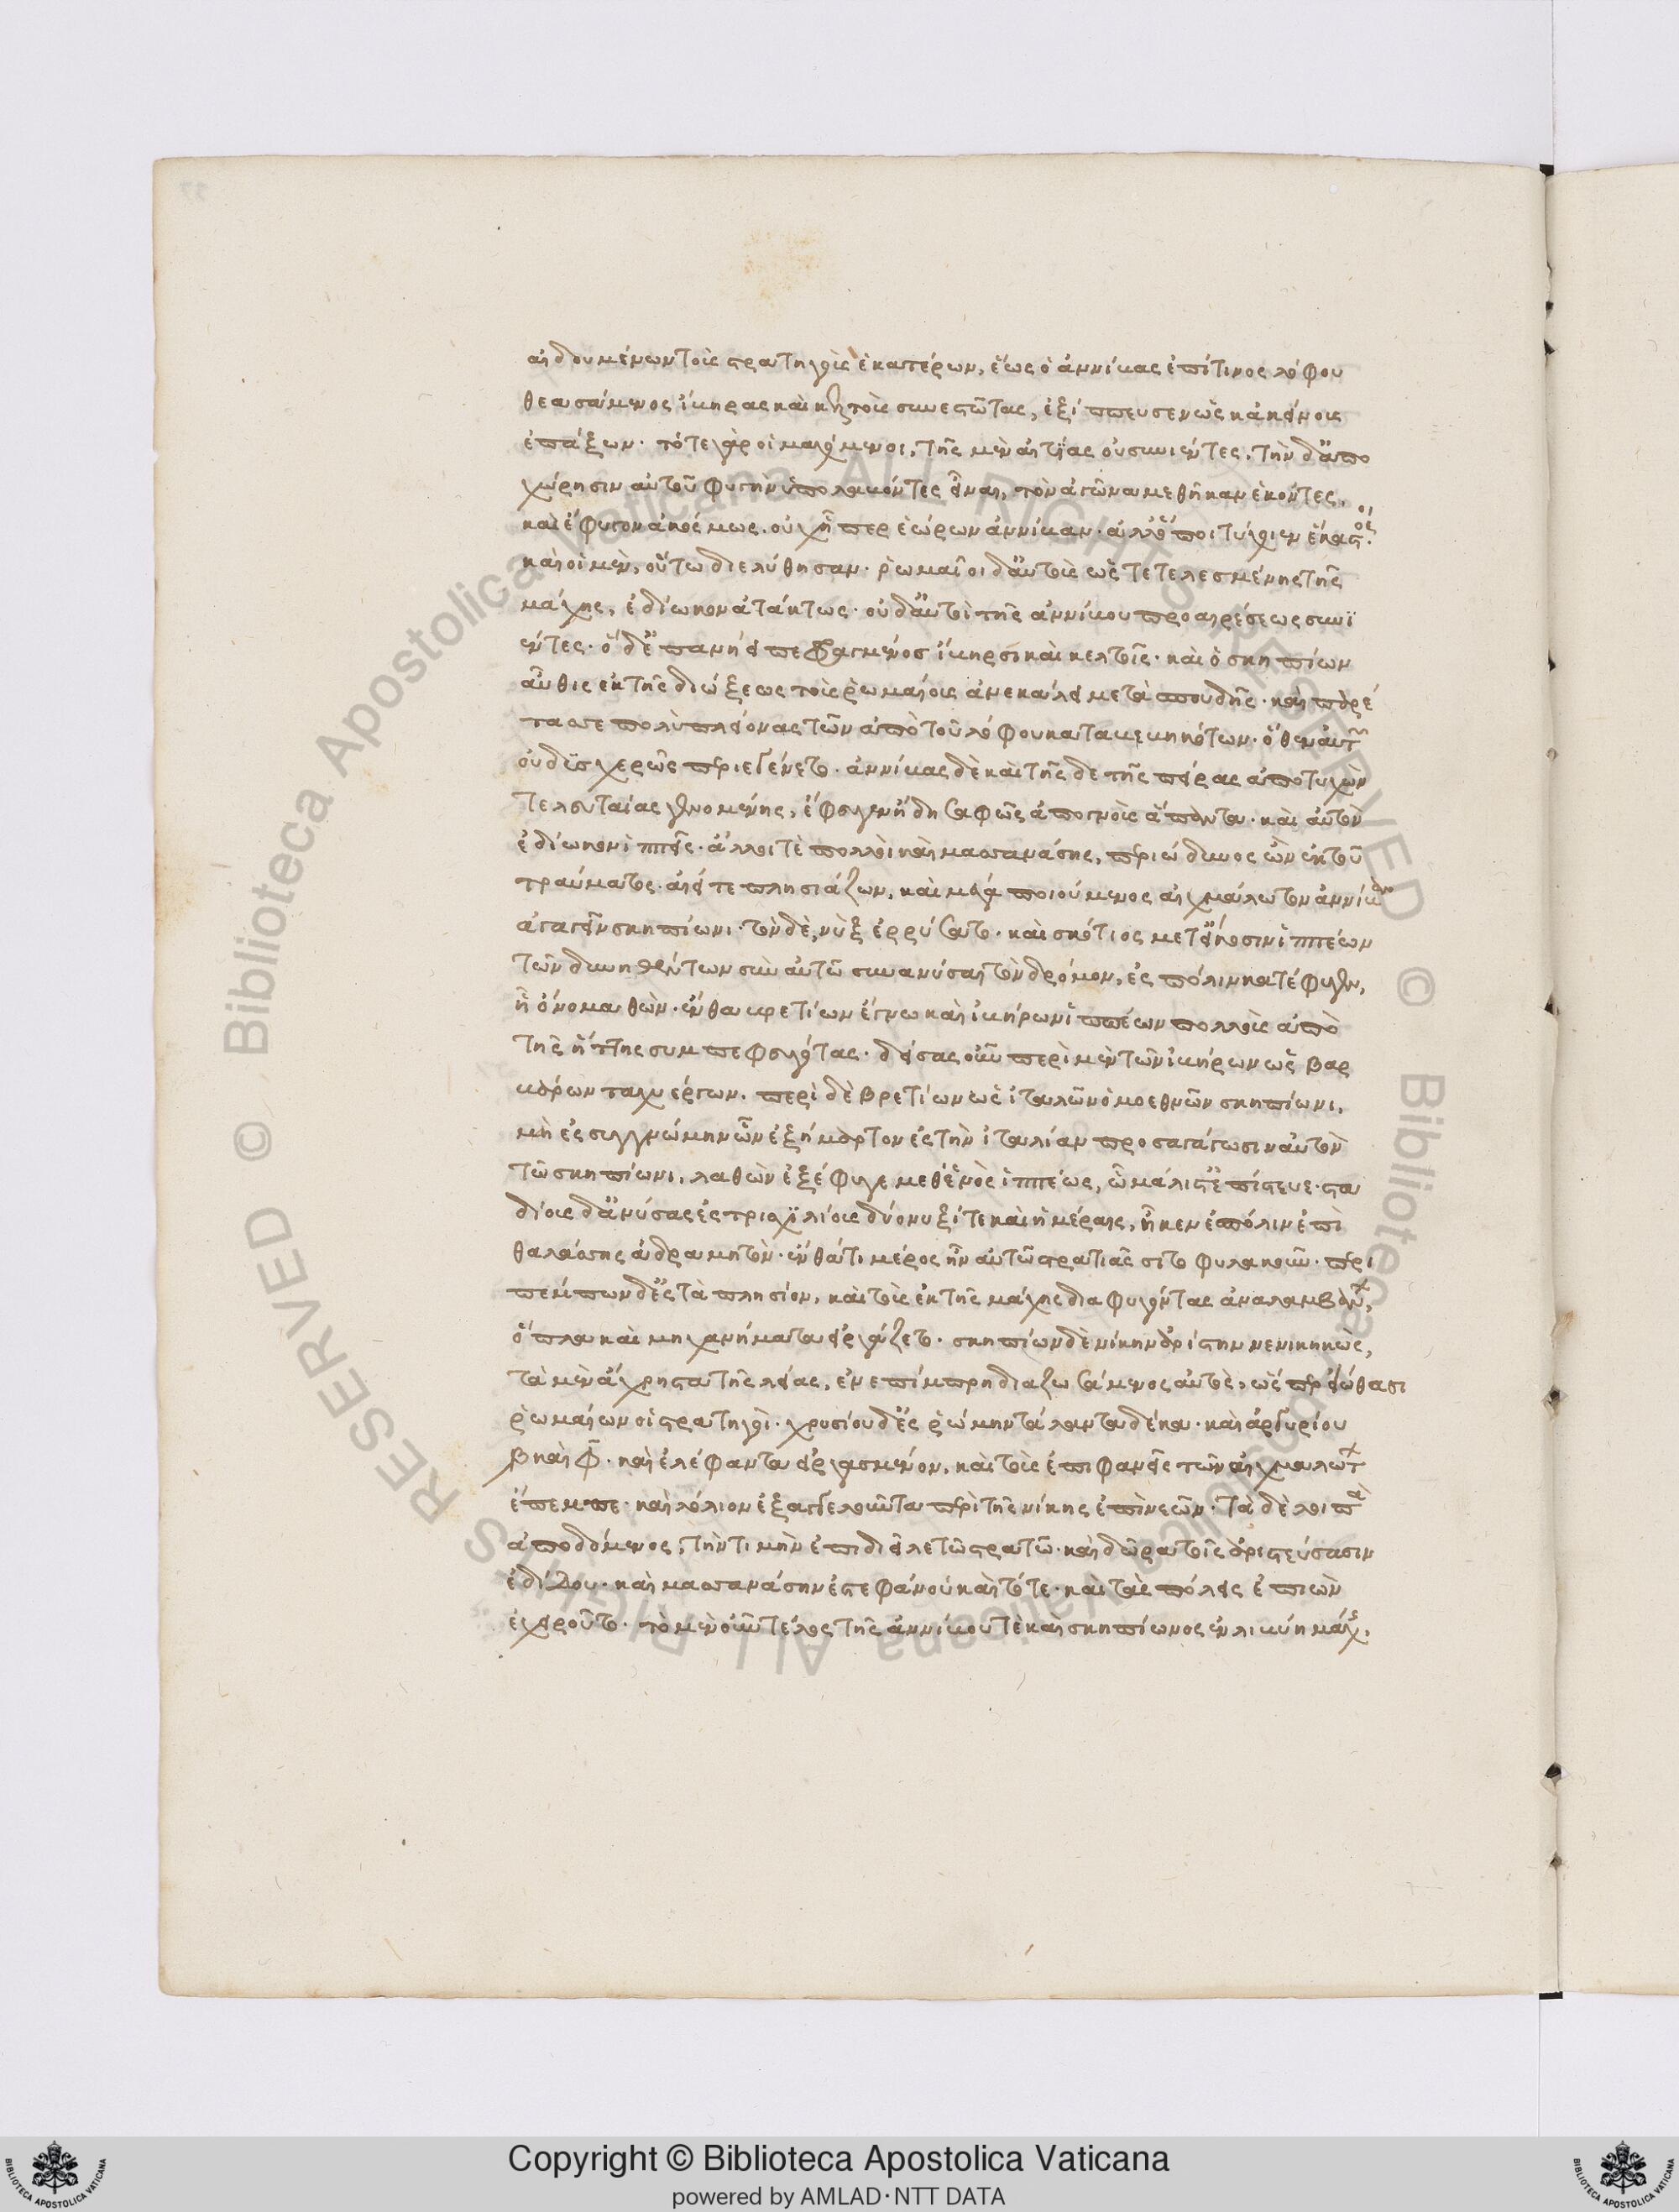 αἰδουμένων τοὺς στρατηγοὺς ἑκατέρων, ἕως ὁ ἀννίβας ἐπί τινος λόφου
θεασάμενος ἴβηρας καὶ κελτοὺς συνεστῶτας, ἐξίππευσεν ὡς κἀκείνους
ἐπάξων· τότε γὰρ οἱ μαχόμενοι, τῆς μὲν αἰτίας οὐ συνιέντες, τὴν δ' ἀπο
χώρησιν αὐτοῦ φυγὴν ὑπολαβόντες εἶναι, τὸν ἀγῶνα μεθῆκαν ἑκόντες,
καὶ ἔφυγον ἀκόσμως. οὐχ ᾗπερ ἑώρων ἀννίβαν· ἀλλ' ὅποι τύχοιεν ἕκαστοι.
καὶ οἱ μὲν, οὕτω διελύθησαν· ῥωμαῖοι δ' αὐτοὺς ὡς τετελεσμένης τῆς
μάχης, ἐδίωκον ἀτάκτως· οὐδ' αὐτοὶ τῆς ἀννίβου προαιρέσεως συνϊ
έντες· ὁ δ' ἐπανῄει πεφραγμένος ἴβηρσι καὶ κελτοῖς· καὶ ὁ σκηπίων
αὖθις ἐκ τῆς διώξεως τοὺς ῥωμαίους ἀνεκάλει μετὰ σπουδῆς· καὶ παρέ
τασσε πολὺ πλείονας τῶν ἀπὸ τοῦ λόφου καταβεβηκότων· ὅθεν αὐτῶν
οὐ δυσχερῶς περιεγένετο· ἀννίβας δὲ καὶ τῆσδε τῆς πείρας ἀποτυχὼν
τελευταίας γενομένης, ἔφευγεν ἤδη σαφῶς ἀπογνοὺς ἅπαντα· καὶ αὐτὸν
ἐδίωκον ἱππεῖς· ἄλλοι τὲ πολλοὶ καὶ μασσανάσης, περιώδυνος ὢν ἐκ τοῦ
τραύματος· αἰεί τε πλησιάζων, καὶ μέγα ποιούμενος αἰχμάλωτον ἀννίβαν
ἀγαγεῖν σκηπίωνι· τὸν δὲ, νὺξ ἐρρύσατο· καὶ σκότιος μετ' εἴκοσιν ἱππέων
τῶν δυνηθέντων σὺν αὐτῷ συνανύσαι τὸν δρόμον, ἐς πόλιν κατέφυγεν,
ᾗ ὄνομα θών· ἔνθα βρεττίων ἔγνω καὶ ἰβήρων ἱππέων πολλοὺς ἀπὸ
τῆς ἥττης συμπεφευγότας· δείσας οὖν περὶ μὲν τῶν ἰβήρων ὡς βαρ
βάρων ταχυέργων. περὶ δὲ βρεττίων ὡς ἰταλῶν ὁμοεθνῶν σκηπίωνι,
μὴ ἐς συγγνώμην ὧν ἐξήμαρτον ἐς τὴν ἰταλίαν προσαγάγωσιν αὐτὸν
τῷ σκηπίωνι, λαθὼν ἐξέφυγε μεθ' ἑνὸς ἱππέως, ᾧ μάλιστ' ἐπίστευε· στα
δίους δ' ἀνύσας ἐς τρισχιλίους δύο νυξί τε καὶ ἡμέραις, ἧκεν ἐς πόλιν ἐπὶ
θαλάσσης ἀδρυμητόν· ἔνθά τι μέρος ἦν αὐτῷ στρατιᾶς σιτοφυλακοῦν· περι
πέμπων δ' ἐς τὰ πλησίον, καὶ τοὺς ἐκ τῆς μάχης διαφυγόντας ἀναλαμβάνων,
ὅπλα καὶ μηχανήματα εἰργάζετο· σκηπίων δὲ νίκην ἀρίστην νενικηκὼς,
τὰ μὲν ἄχρηστα τῆς λείας, ἐνεπίμπρη διαζωσάμενος αὐτὸς, ὡς περ εἰώθασι
ῥωμαίων οἱ στρατηγοί· χρυσίου δ' ἐς ῥώμην τάλαντα δέκα· καὶ ἀργυρίου
͵β καὶ φ̅· καὶ ἐλέφαντα εἰργασμένον, καὶ τοὺς ἐπιφανεῖς τῶν αἰχμαλώτων
ἔπεμπε· καὶ λόλιον ἐξαγγελοῦντα περὶ τῆς νίκης ἐπὶ νεῶν· τὰ δὲ λοιπὰ
ἀποδόμενος, τὴν τιμὴν ἐπιδιεῖλε τῷ στρατῷ· καὶ δῶρα τοῖς ἀριστεύσασιν
ἐδίδου· καὶ μασσανάσσην ἐστεφάνου καὶ τότε· καὶ τὰς πόλεις ἐπιὼν
ἐχειροῦτο· τὸ μὲν οὖν τέλος τῆς ἀννίβου τὲ καὶ σκηπίωνος ἐν λιβύῃ μάχης,